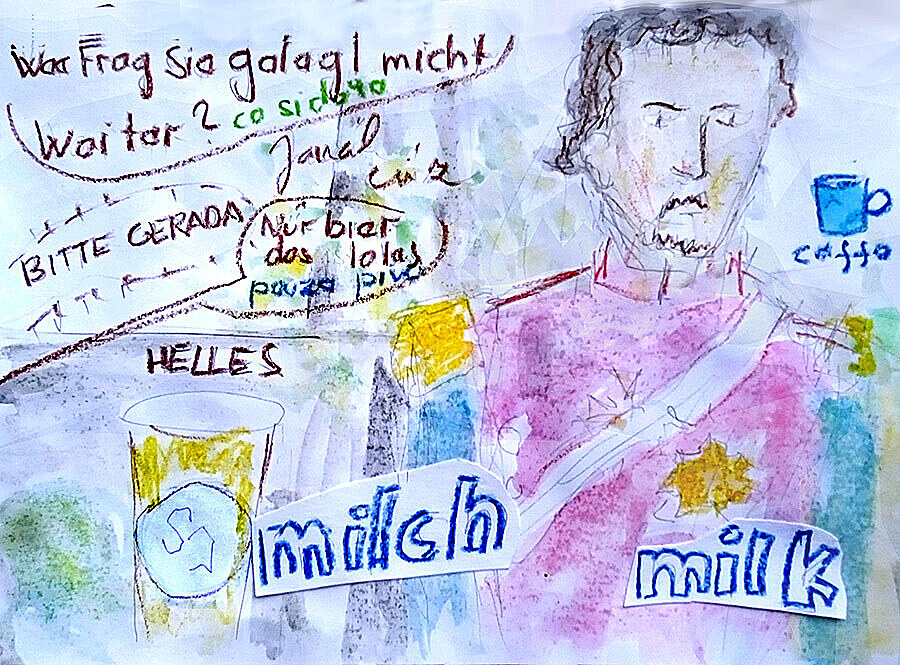 Frag Sie galagl micht
Waiter?
co sidoro
BITTE GERADA
Nur bier
das lolas
pouza pivo
HELLES
coffo
milch
milk